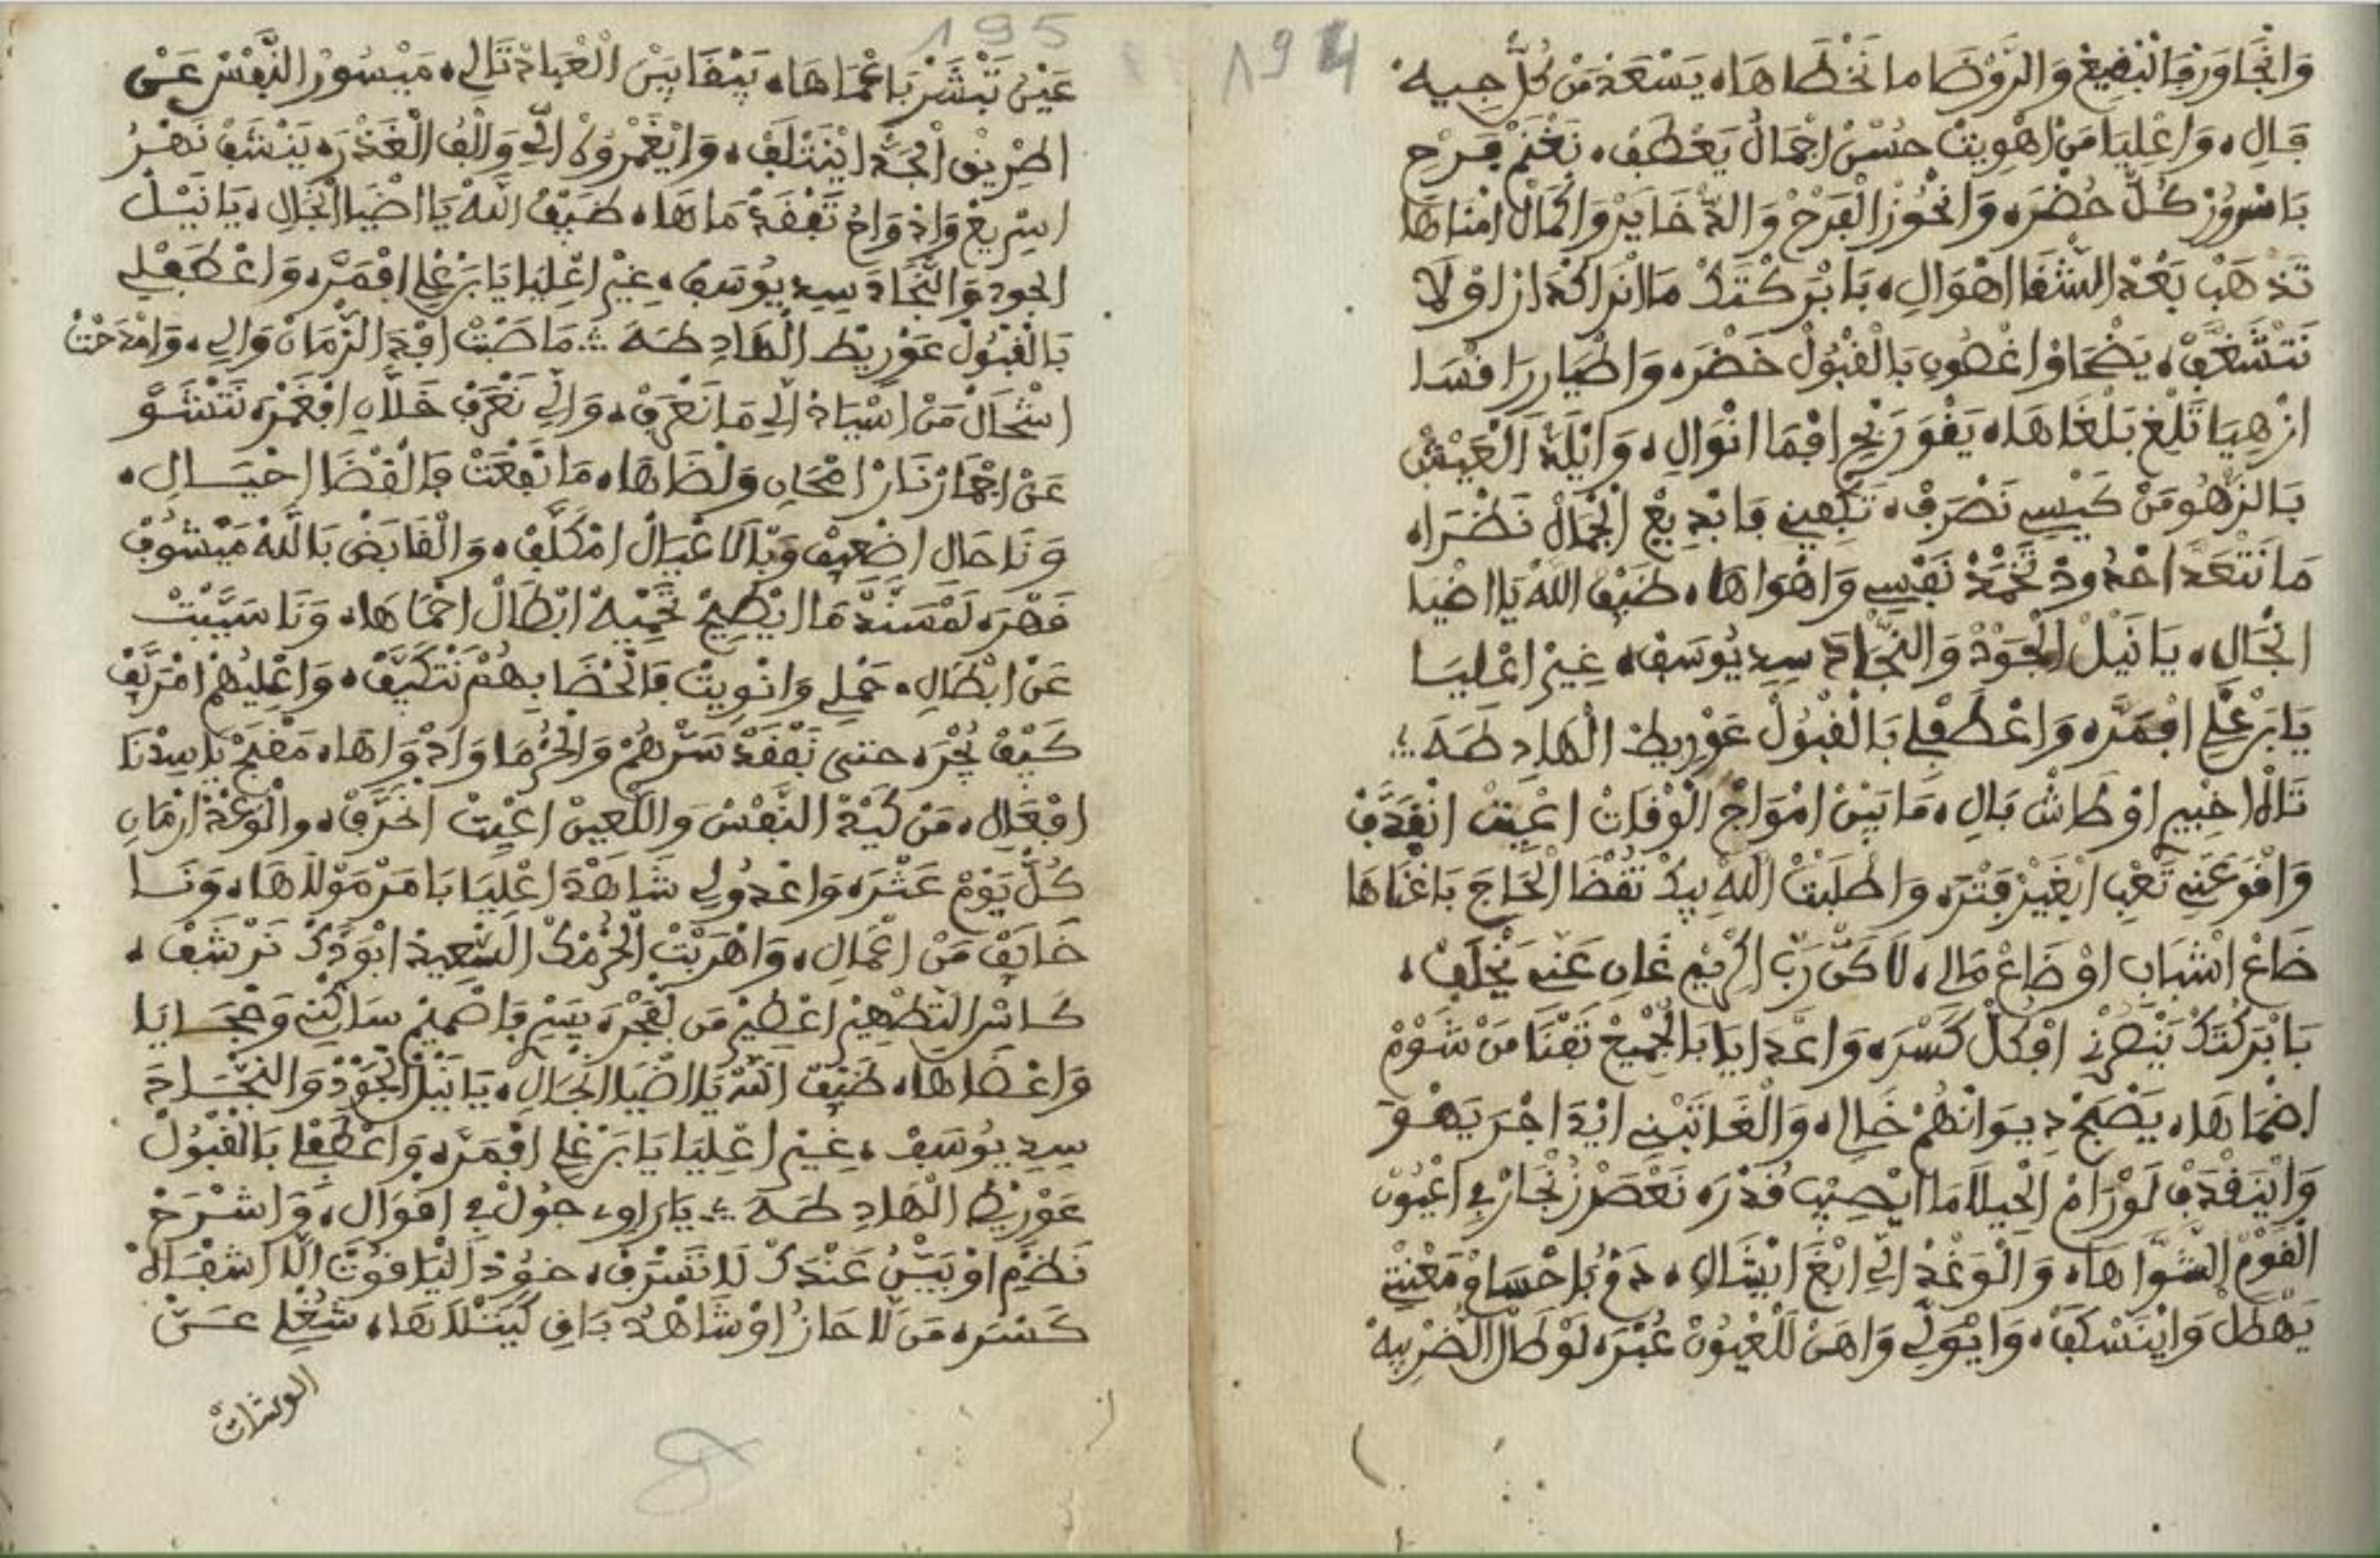 194
وَانْجَاوَرْ فَالْبْقِيعْ وَالرَّوْضَا ما نَخْطَاهَا، يَسْعَدْ مَنْ كُلّ جِيهْ
فَالِ، وَاعْلِيَا مَنْ اهْوِيتْ حُسْنْ اجْمَالُ يَعْطَفْ، نَغْنَمْ فَرْحِ
بَاسْرُورْ كُلّ حُضْرَه وَانْحُوزْ الْفَرْحْ وَالدّْخَايَرْ وَاكْمَالْ امْنَاهَا
تَذْهَبْ بَعْدْ الشّْقَا اهْوَالِ، بَابْرَكْتَكْ مَا انْرَا اكْدَارْ اوْ لَا
نَتْشَغَّفْ، يَضْحَاوْا غْصُونِ بَالْقْبُولْ خَضْرَه وَاطْيَار رَافْسَا
ازْهِيَا تَلْغِ بَلْغَاهَا، يَقْوَ رَبْحِ افْمَا انْوَالِ، وَانْلَدّْ الْعَيْشْ
بَالزّْهُو مَنْ كَيْسِي نَصْرَفْ، تَكْفِينِي فَابْدِيعْ الْجْمَالْ نَظْرَا،
مَا نَتْعَدّا حْدُودْ تَخْمَدْ نَفْسِي وَاهْوَاهَا، ضَيْفْ اللّٰهْ يَا اضْيَا
انْجَالِ، يَا نَيْلْ الْجُودْ وَالنّْجَادَ سِيدِ يُوسَفْ، غِيرْ اعْلِيَا
يَا بَرْغْلِي افْمَرَّه وَاعْطَفْ لِي بَالْقْبُولْ عَوْرِيطْ الْهَادِ طَهَ
تَالَا اخْبِيرِ اوْ طَاشْ بَالِ، مَا بِينْ امْوَاجْ الْوْفَاتْ اعْيِيتْ انْقَدَّفْ
وَاقْوَ عَنِّي تَعْبِ ابْغَيْرْ فَتْرَه وَاطْلَبْتْ اللّٰهْ بِيكْ تُقْضَا الْحَاجَ بَاغْنَاهَا
ضَاعْ اشْبَابِ اوْ ضَاعْ مَالِي، لَاكَنّْ رَبّْ الْكْرِيمْ غَانِ عَنِّي يَخْلَفْ،
بَابْرَكْتَكْ يَنْصَرْنِي افْكُلّْ كَسْرَه وَاعْدَايَا بَالْجْمِيعْ تَفْنَا مَنْ شَوْمْ
اضْمَاهَا، يَصْبَحْ دِيوَانْهُمْ خَالِ، وَالْغَاتَبْنِي ايْدَا جْرَ يَهْوَ
وَايْنَقْدَفْ لَوْ رَامْ الْحِيلَا مَا ايْصِيبْ قُدْرَه نَعْصَرْ زُنْجَارْ فِي اعْيُونْ
الْقَوْمْ الشّْوَّاهَا، وَالْوَغْدْ الِّي ابْغَ انْشَالِ، دَمْعُ بَاحْسَامْ مَعْنَتِي
يَهْطَلْ وَايْنَسْكَفْ، وَايْوَلِّي وَاهَنْ لَلْعْيُونْ عُبْرَه لَوْ طَالْ الضّْرِ بِيهْ
195
عَيْنْ تَبْشَرْ بَاعْمَاهَا، يَبْقَا بِينْ الْعْبَادْ تَالِي، مَيْسُورْ النَّفْسْ عَنْ
اطْرِيقْ الْجَدّْ ايْنَتْلَفْ، وَايْغَمْرُوكْ الِّي وَالْفْ الْغَدْرَه يَنْشَفْ نَهْرُ
اسْرِيعْ وَادْوَاحُ تَفْقَدْ مَاهَا، ضَيْفْ اللّٰهْ يَا اضْيَا انْجَالِ، يَا نَيْلْ
الجود وَالنّْجَادَ سِيدِ يُوسَفْ، غِيرْ اعْلِيَا يَا بَرْغْلِي افْمَرَّه وَاعْطَفْ لِي
بَالْقْبُولْ عَوْرِيطْ الْهَادِ طَهَ مَا صَبْتْ افْدَ الزّْمَانْ وَالِي، وَامْدَحْتْ
اشْحَالْ مَنْ اسْيَادْ الِّي مَا نَعْرَفْ، وَالِّي نَعْرَفْ خَلَّانِ افْغَمْرَه نَتْشَوَّ
عَنْ اجْمَارْ نَارْ امْحَانِ وَلْضَاهَا، مَا نَفْعَتْ فَالْقْضَا احْيَالِ،
وَنَا حَالِ اضْعِيفْ وَبْاَلَا عْيَالْ امْكَلَّفْ، وَالْقَابَضْ بَاللّٰهْ مَيْشُوفْ
قَهْرَه لَمْسَنَّدْ مَا ايْطِيحْ تَحْمِيهْ ابْطَالْ احْمَاهَا، وَنَا سَيَّبْتْ
عَنْ ابْطَالِ، حَمْلِي وَانْوِيتْ فَالْحْضَا بِهُمْ نَتْكَيَّفْ، وَاعْلِيهُمْ امْرَيَّفْ
كَيْفْ يُجْرَه حتى نَفْقَدْ سَرّْهُمْ وَالْحُرْمَا وَادْوَاهَا، مَفْجَحْ يَاسِيدْنَا
افْعَالِ، مَنْ كَيْدْ النَّفْسْ وَاللّْعِينْ اعْيِيتْ انْخَرَّفْ، وَالْوَغْدْ ارْمَانِ
كُلّْ يَوْمْ عَثْرَه وَاعْدُولِي شَاهْدَ اعْلِيَا بَامَرْ مَوْلَاهَا، وَنَا
خَايَفْ مَنْ اعْمَالِ، وَاهْرَبْتْ الْحُرْمَكْ السّْعِيدْ ابْوَدَّكْ نَرْشَفْ،
كَاسْ التّْطْهِيرْ اعْطِيرْ مَن لَفْجَرَه يَسْرِ فَاصْمِيمْ سَاكْنِي وَحْجَايَا
وَاعْضَاهَا، ضَيْفْ اللّٰهْ يَا اضْيَا انْجَالِ، يَا نَيْلْ الْجُودْ وَالنّْجَادَ
سِيدِ يُوسَفْ، غِيرْ اعْلِيَا يَا بَرْغْلِي افْمَرَّه وَاعْطَفْ لِي بَالْقْبُولْ
عَوْرِيطْ الْهَادِ طَهَ يَا رَاوِي جُولْ فِي اقْوَالِ، وَاشْرَحْ
نَظْمِ اوْ بَيّْنُ عَنْدَكْ لَا تَسْرَفْ، خُودْ الْيَاقُوتْ الِّي اشْفَاهْ
كَسْرَه مَن لَا حَازُ اوْ شَاهْدُ بَاقِ كَيَتْلَاهَا، شُغْلِي عَنْ
الوشات